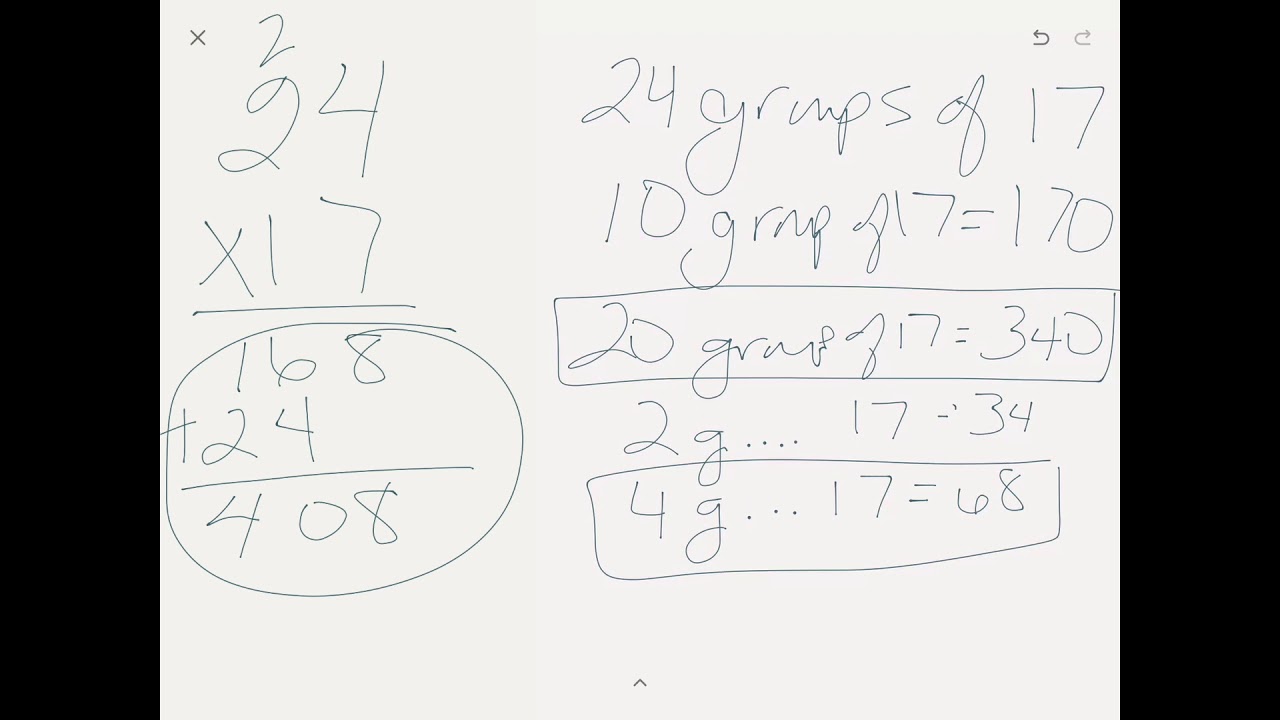 2
24
x17
168
+24
408
24 groups of 17
10 group of 17=170
20 groups of 17=340
2 g .... 17 = 34
4 g ... 17 = 68